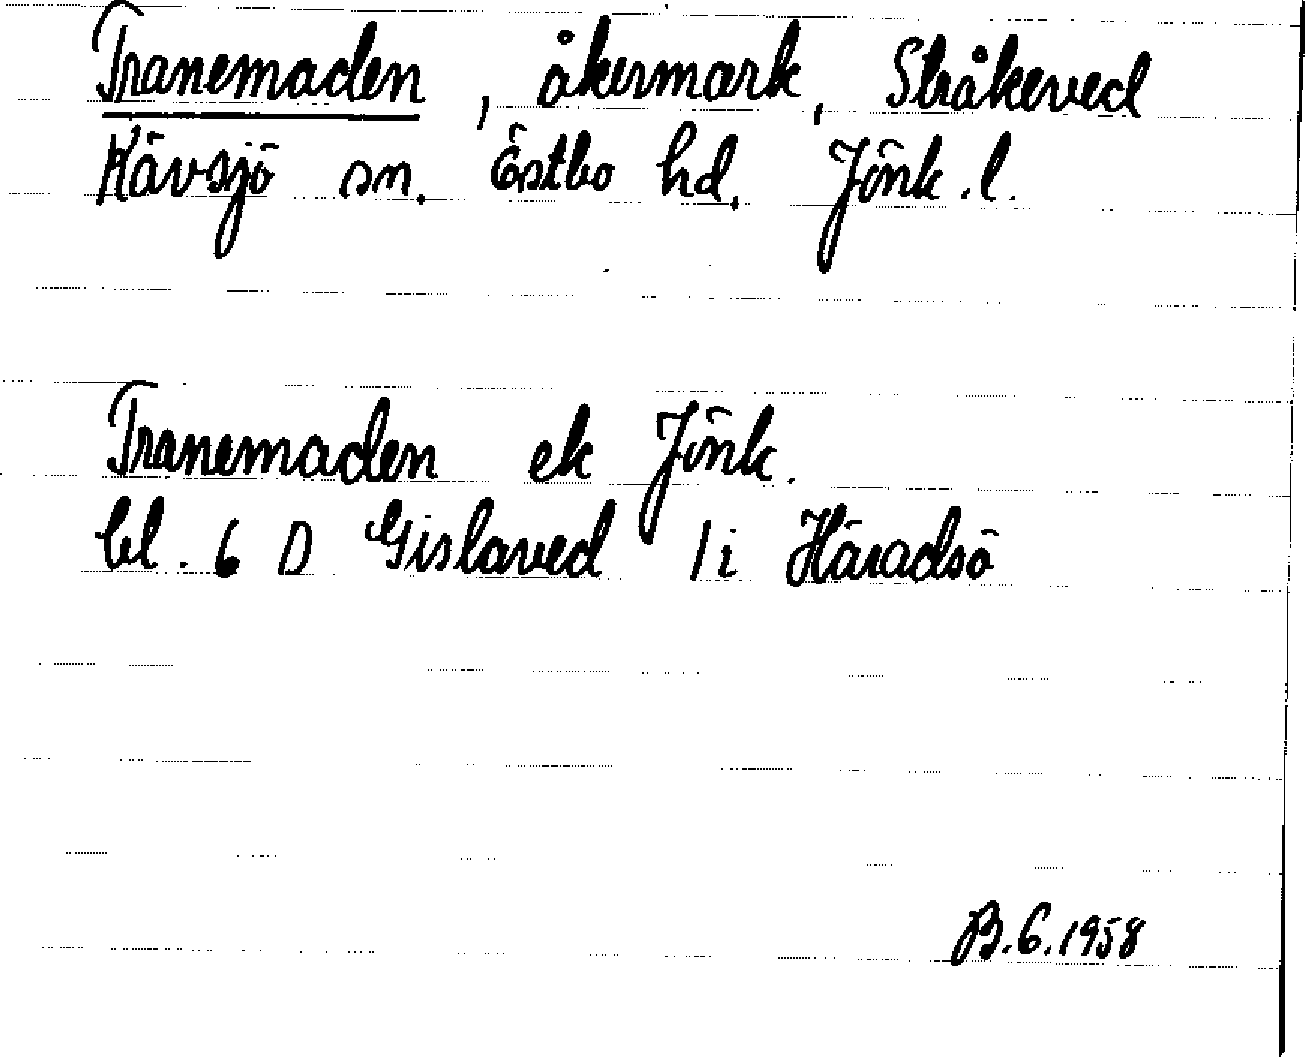 Tranemaden, åkermark, Stråkeved
Kävsjö sn. Östbo hd. Jönk.l.
Tranemaden ek Jönk.
bl. 6 D Gislaved 1i Häradsö
B.G.1958